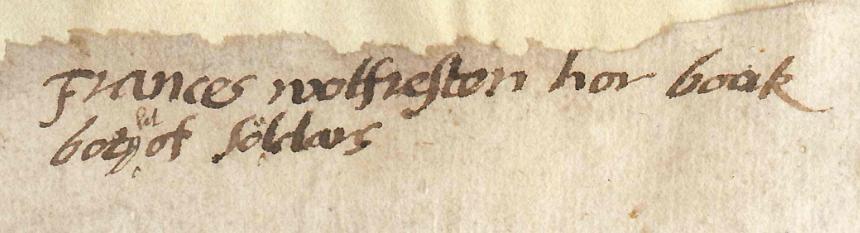 Frances wolfreston hor bouk
bot of soldars